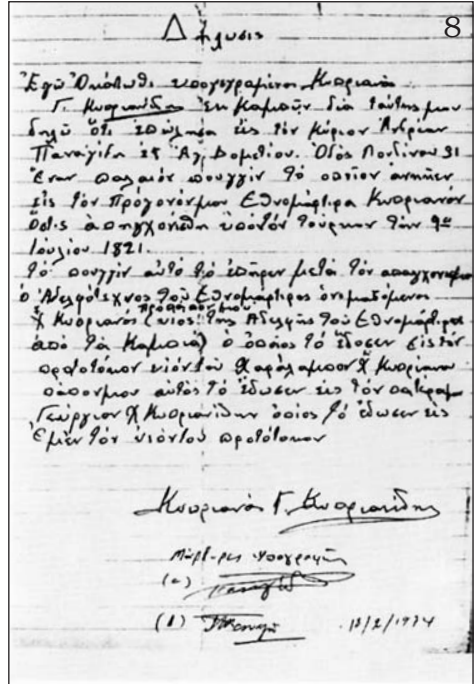 8
Δήλωσις
Ἐγὼ ὁ κάτωθι υπογεγραμένος Κυπριανὸς
Γ. Κυπριανίδης ἐκ Καμπιῶν διὰ ταύτης μου
δηλῶ ὅτι ἐπώλησα εἰς τὸν κύριον Ἀνδρέαν
Παναγίδη ἐξ Ἁγ. Δομετίου. Ὁδὸς Λονδίνου 31
Ἕναν παλαιὸν πουγγὶν τὸ ὁποῖον ανηκεν
εἰς τὸν πρόγονόνμου Εθνομάρτυρα Κυπριανόν
Ὅστις ἀπηγχονίσθη ὑπὸ τόν τούρκων τὴν 9ην
Ιουλίου 1821.
τὸ πουγγὶν αὐτὸ τὸ ἐπῆρεν μετὰ τὸν απαγχονισμὸ
ὁ Ἀδελφότεχνος τοῦ Ἐθνομάρτυρος ὀνομαζόμενος
Χ Κυπριανός (υιὸς τῆς Αδελφῆς τοῦ Εθνομάρτυρος
ἀπὸ τὰ Καμπιὰ) ὁ ὁποῖος τὸ ἔδοσεν εἰς τὸν
πρωτότοκον υιόντου Χαράλαμπον Χ Κυπριανοῦ
πάππονμου αυτὸς τὸ ἔδωσεν εἰς τὸν πατέραμου
Γεώργιον Χ Κυπριανίδην ὁποῖος τὸ ἔδωσεν εἰς
Ἐμὲν τὸν υιόντου πρωτότοκον
Κυπριανός Γ. Κυπριανίδης
Μάρτυρες υπογραφῆς
(α)
(β)